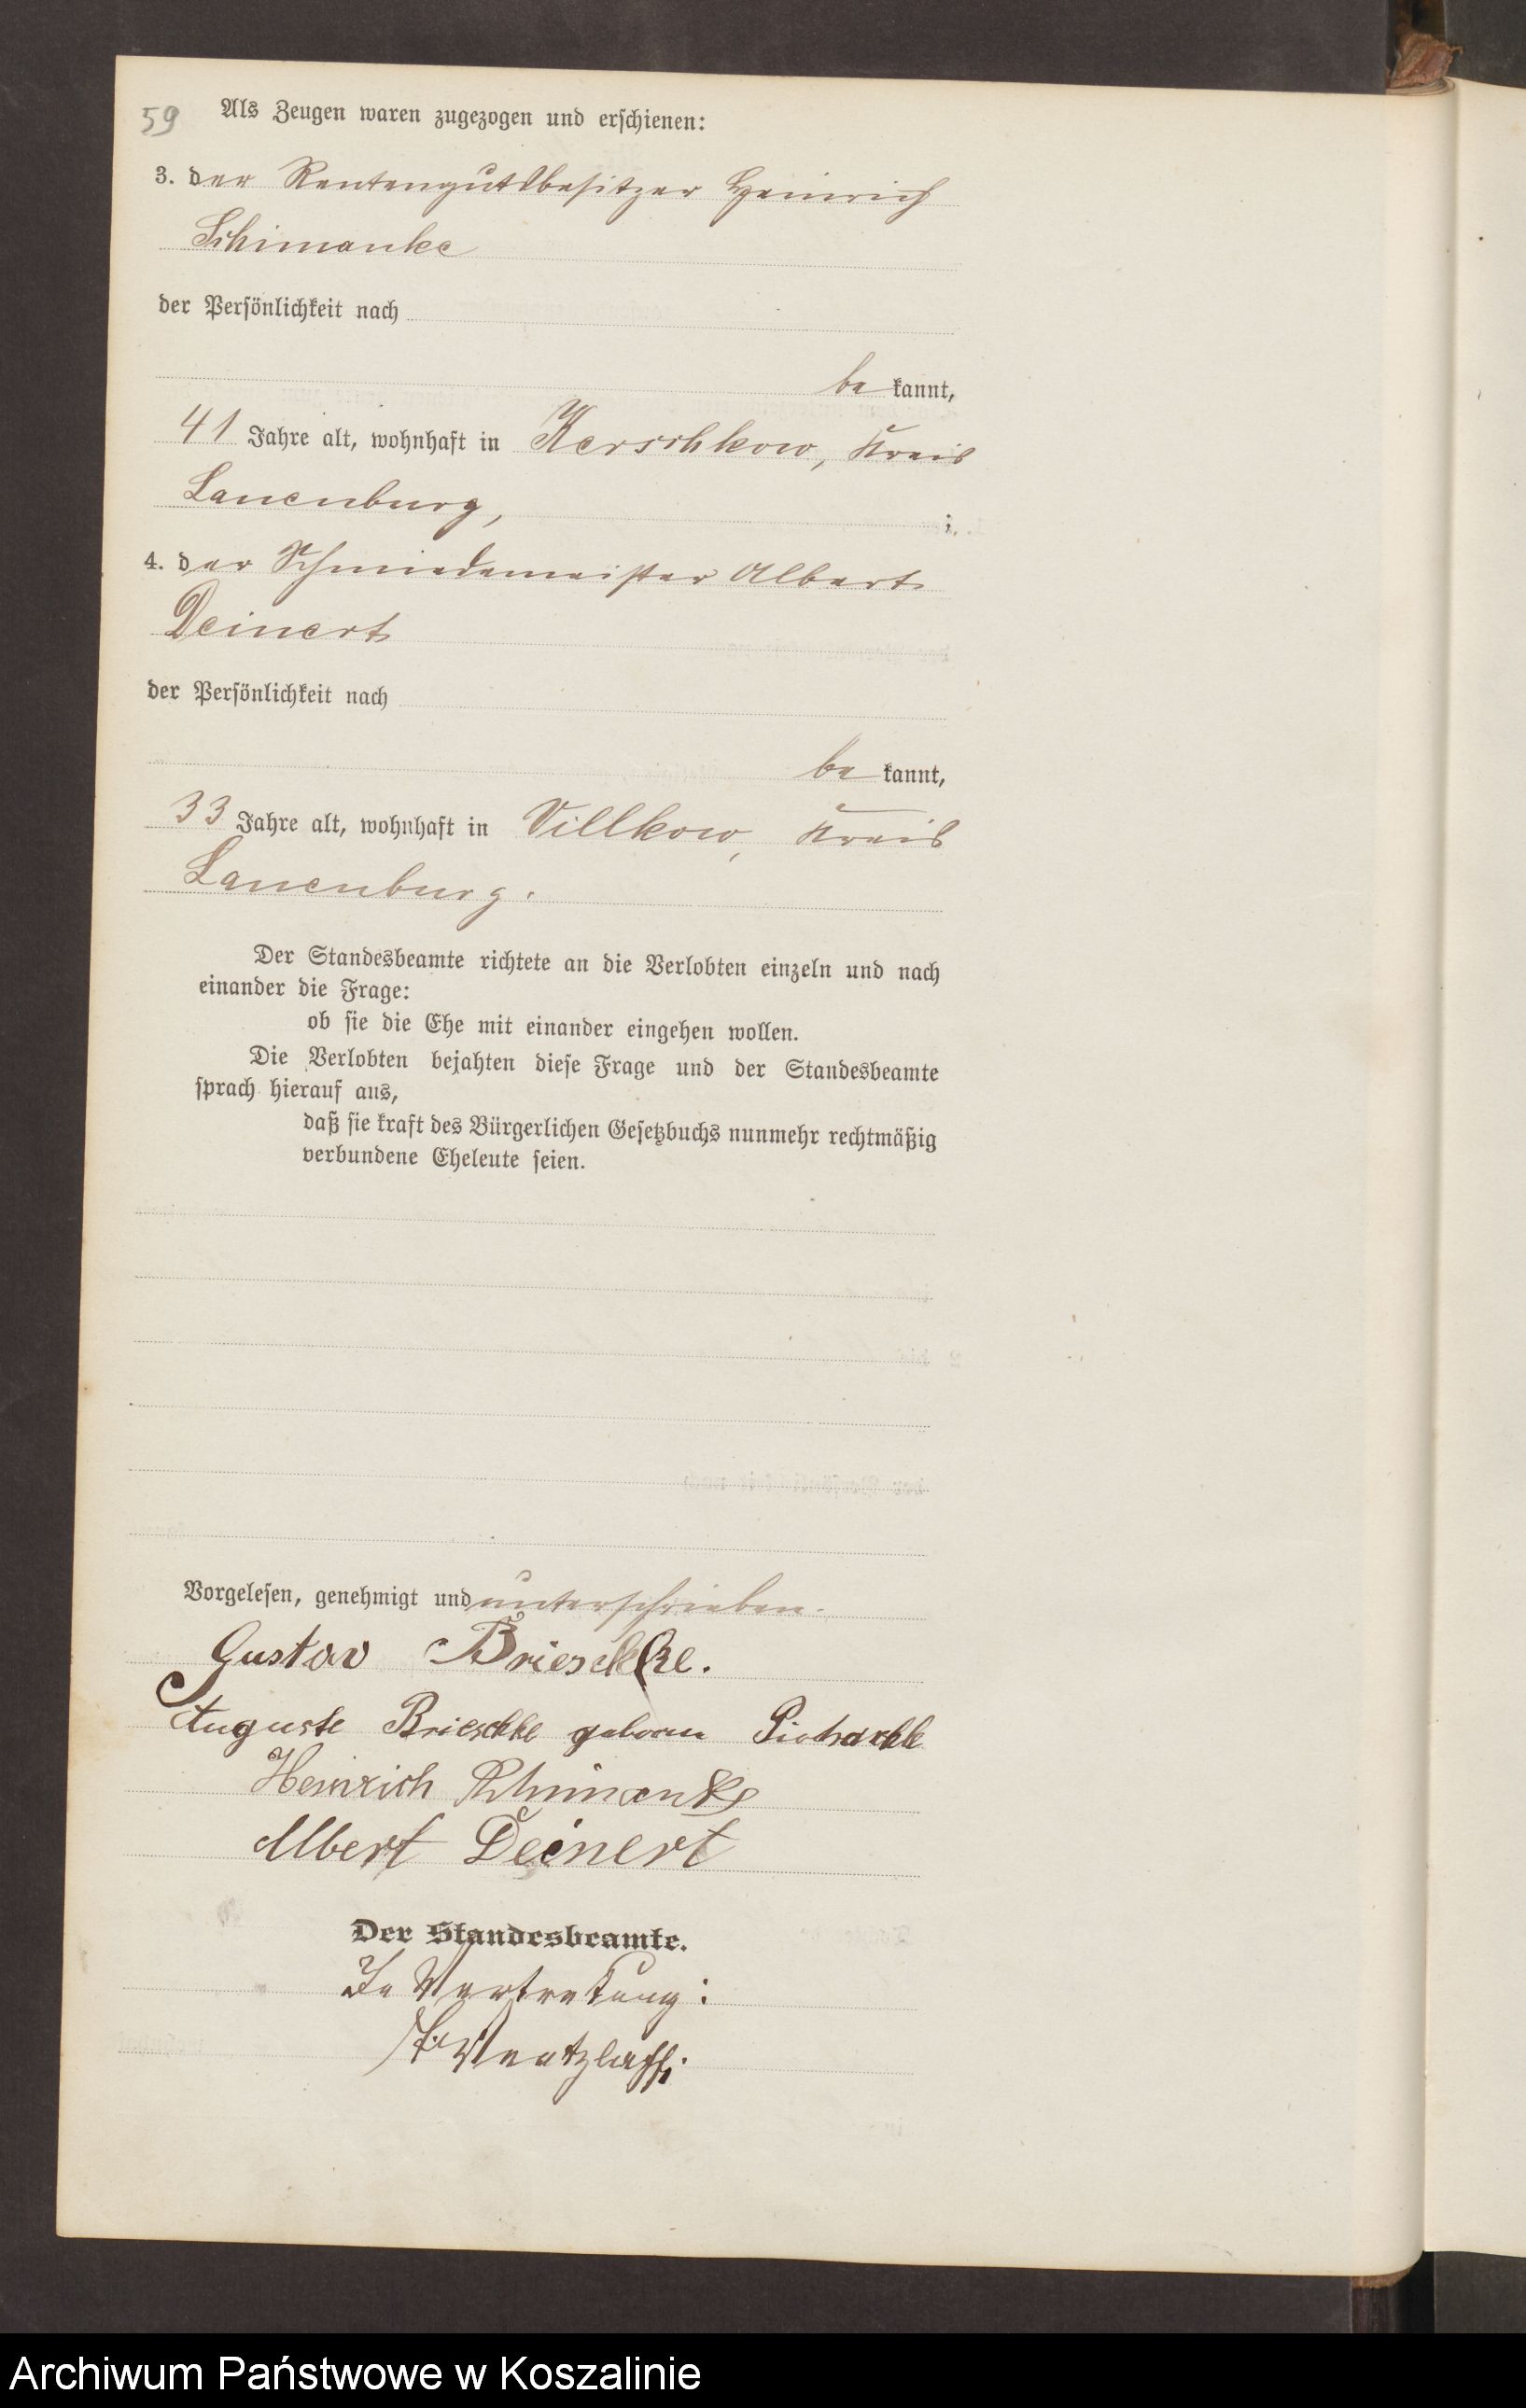 59
Als Zeugen waren zugezogen und erschienen:
3. der Rentengutsbesitzer Heinrich
Schimanke
der Persönlichkeit nach
be kannt,
41 Jahre alt, wohnhaft in Kerschkow, Kreis
Lauenburg, ;
4. der Schmiedemeister Albert
Deinert
der Persönlichkeit nach
be kannt,
33 Jahre alt, wohnhaft in Villkow, Kreis
Lauenburg.
Der Standesbeamte richtete an die Verlobten einzeln und nach
einander die Frage:
ob sie die Ehe mit einander eingehen wollen.
Die Verlobten bejahten diese Frage und der Standesbeamte
sprach hierauf aus,
daß sie kraft des Bürgerlichen Gesetzbuchs nunmehr rechtmäßig
verbundene Eheleute seien.
Vorgelesen, genehmigt und unterschrieben.
Gustav Brieschke.
Auguste Brieschke geboren
Heinrich Schimanke
Albert Deinert
Der Standesbeamte.
In Vertretung:
Wentzlaff.
Archiwum Państwowe w Koszalinie